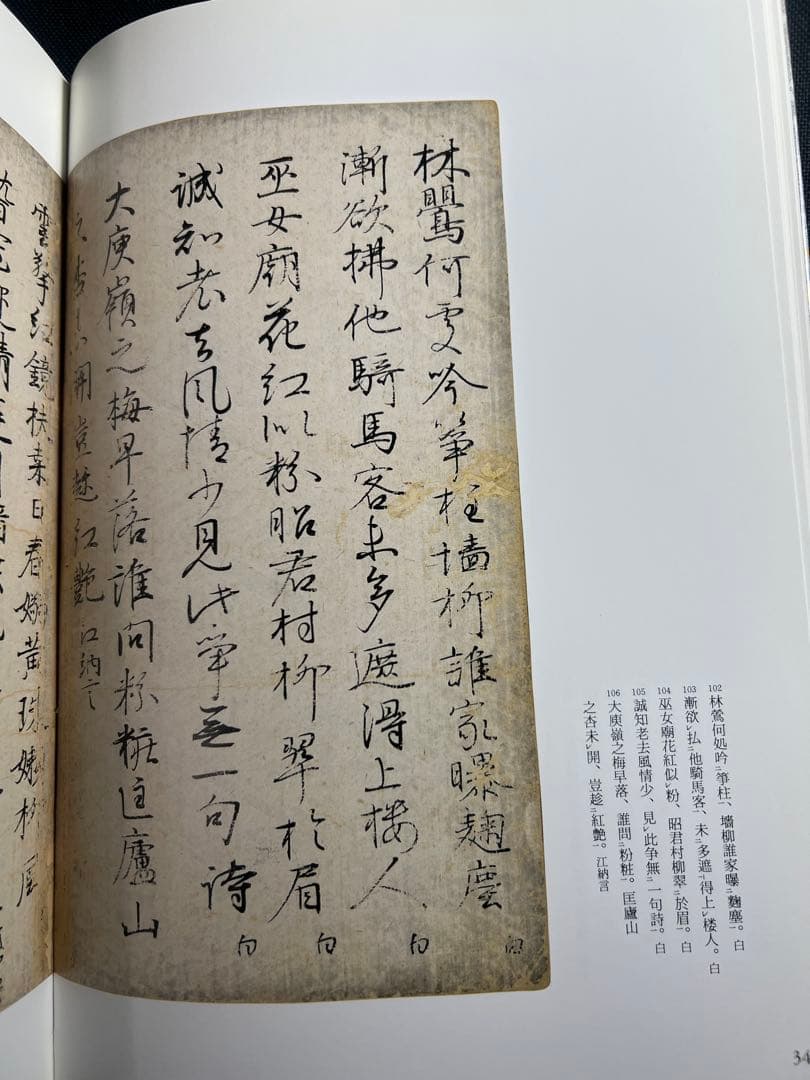 102 林鶯何処吟二箏柱一、墻柳誰家曝二麴塵一。白
103 漸欲レ払二他騎馬客一、未三多遮二得上レ楼人一。白
104 巫女廟花紅似レ粉、昭君村柳翠二於眉一。白
105 誠知老去風情少、見レ此争無二一句詩一。白
106 大庾嶺之梅早落、誰問二粉粧一。匡廬山
之杏未レ開、豈趁二紅艶一。江納言
林鸎何処吟箏柱墻柳誰家曝麹塵 白
漸欲拂他騎馬客未多遮得上楼人 白
巫女廟花紅似粉昭君村柳翠於眉 白
誠知老去風情少見此争無一句詩 白
大庾嶺之梅早落誰問粉粧匡廬山
之杏未開豈趁紅艶 江納言
雲擎紅鏡扶桑日春嫋黄珠嫩柳風
34